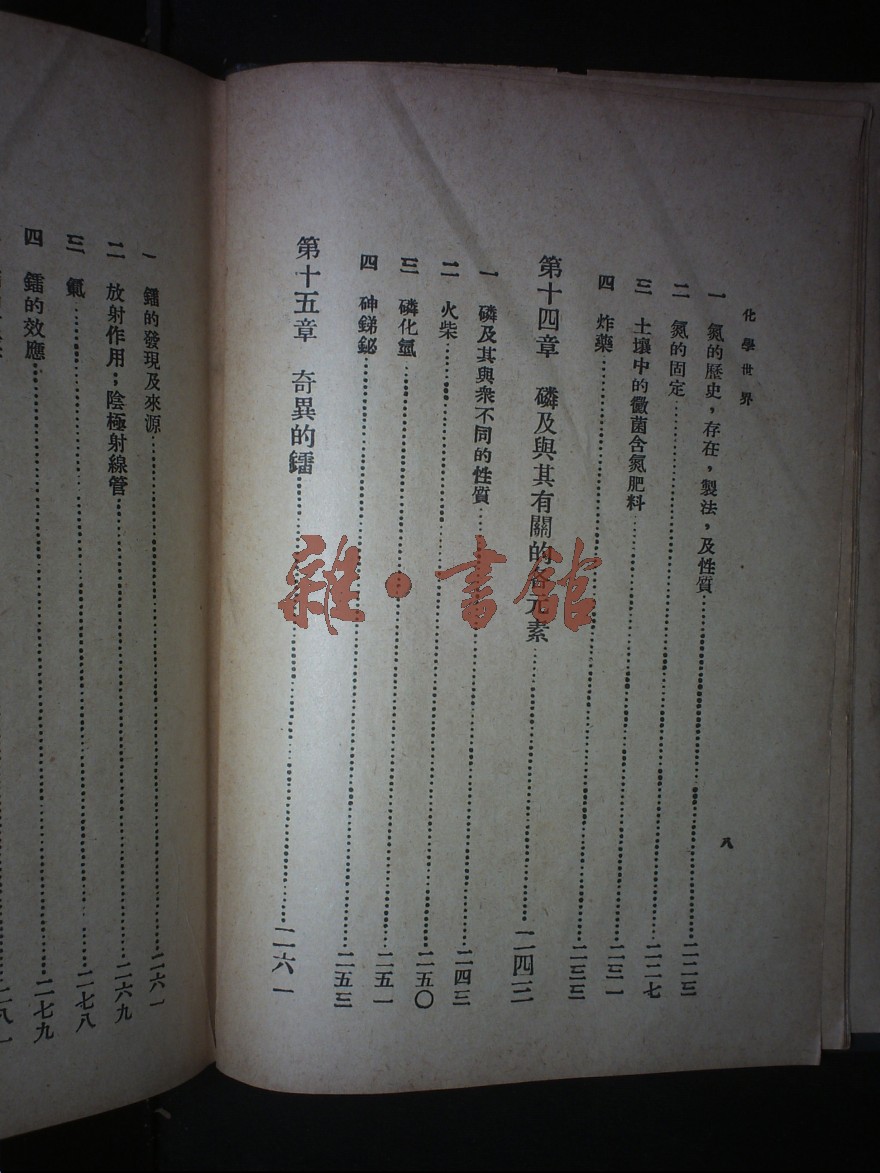 化學世界 八
一 氮的歷史，存在，製法，及性質……二二三
二 氮的固定……二二七
三 土壤中的黴菌含氮肥料……二三一
四 炸藥……二三三
第十四章 磷及與其有關的各元素……二四三
一 磷及其與衆不同的性質……二四三
二 火柴……二五〇
三 磷化氫……二五一
四 砷銻鉍……二五三
第十五章 奇異的鐳……二六一
一 鐳的發現及來源……二六一
二 放射作用；陰極射線管……二六九
三 ……二七八
四 鐳的效應……二七九
二八一
雜·書館